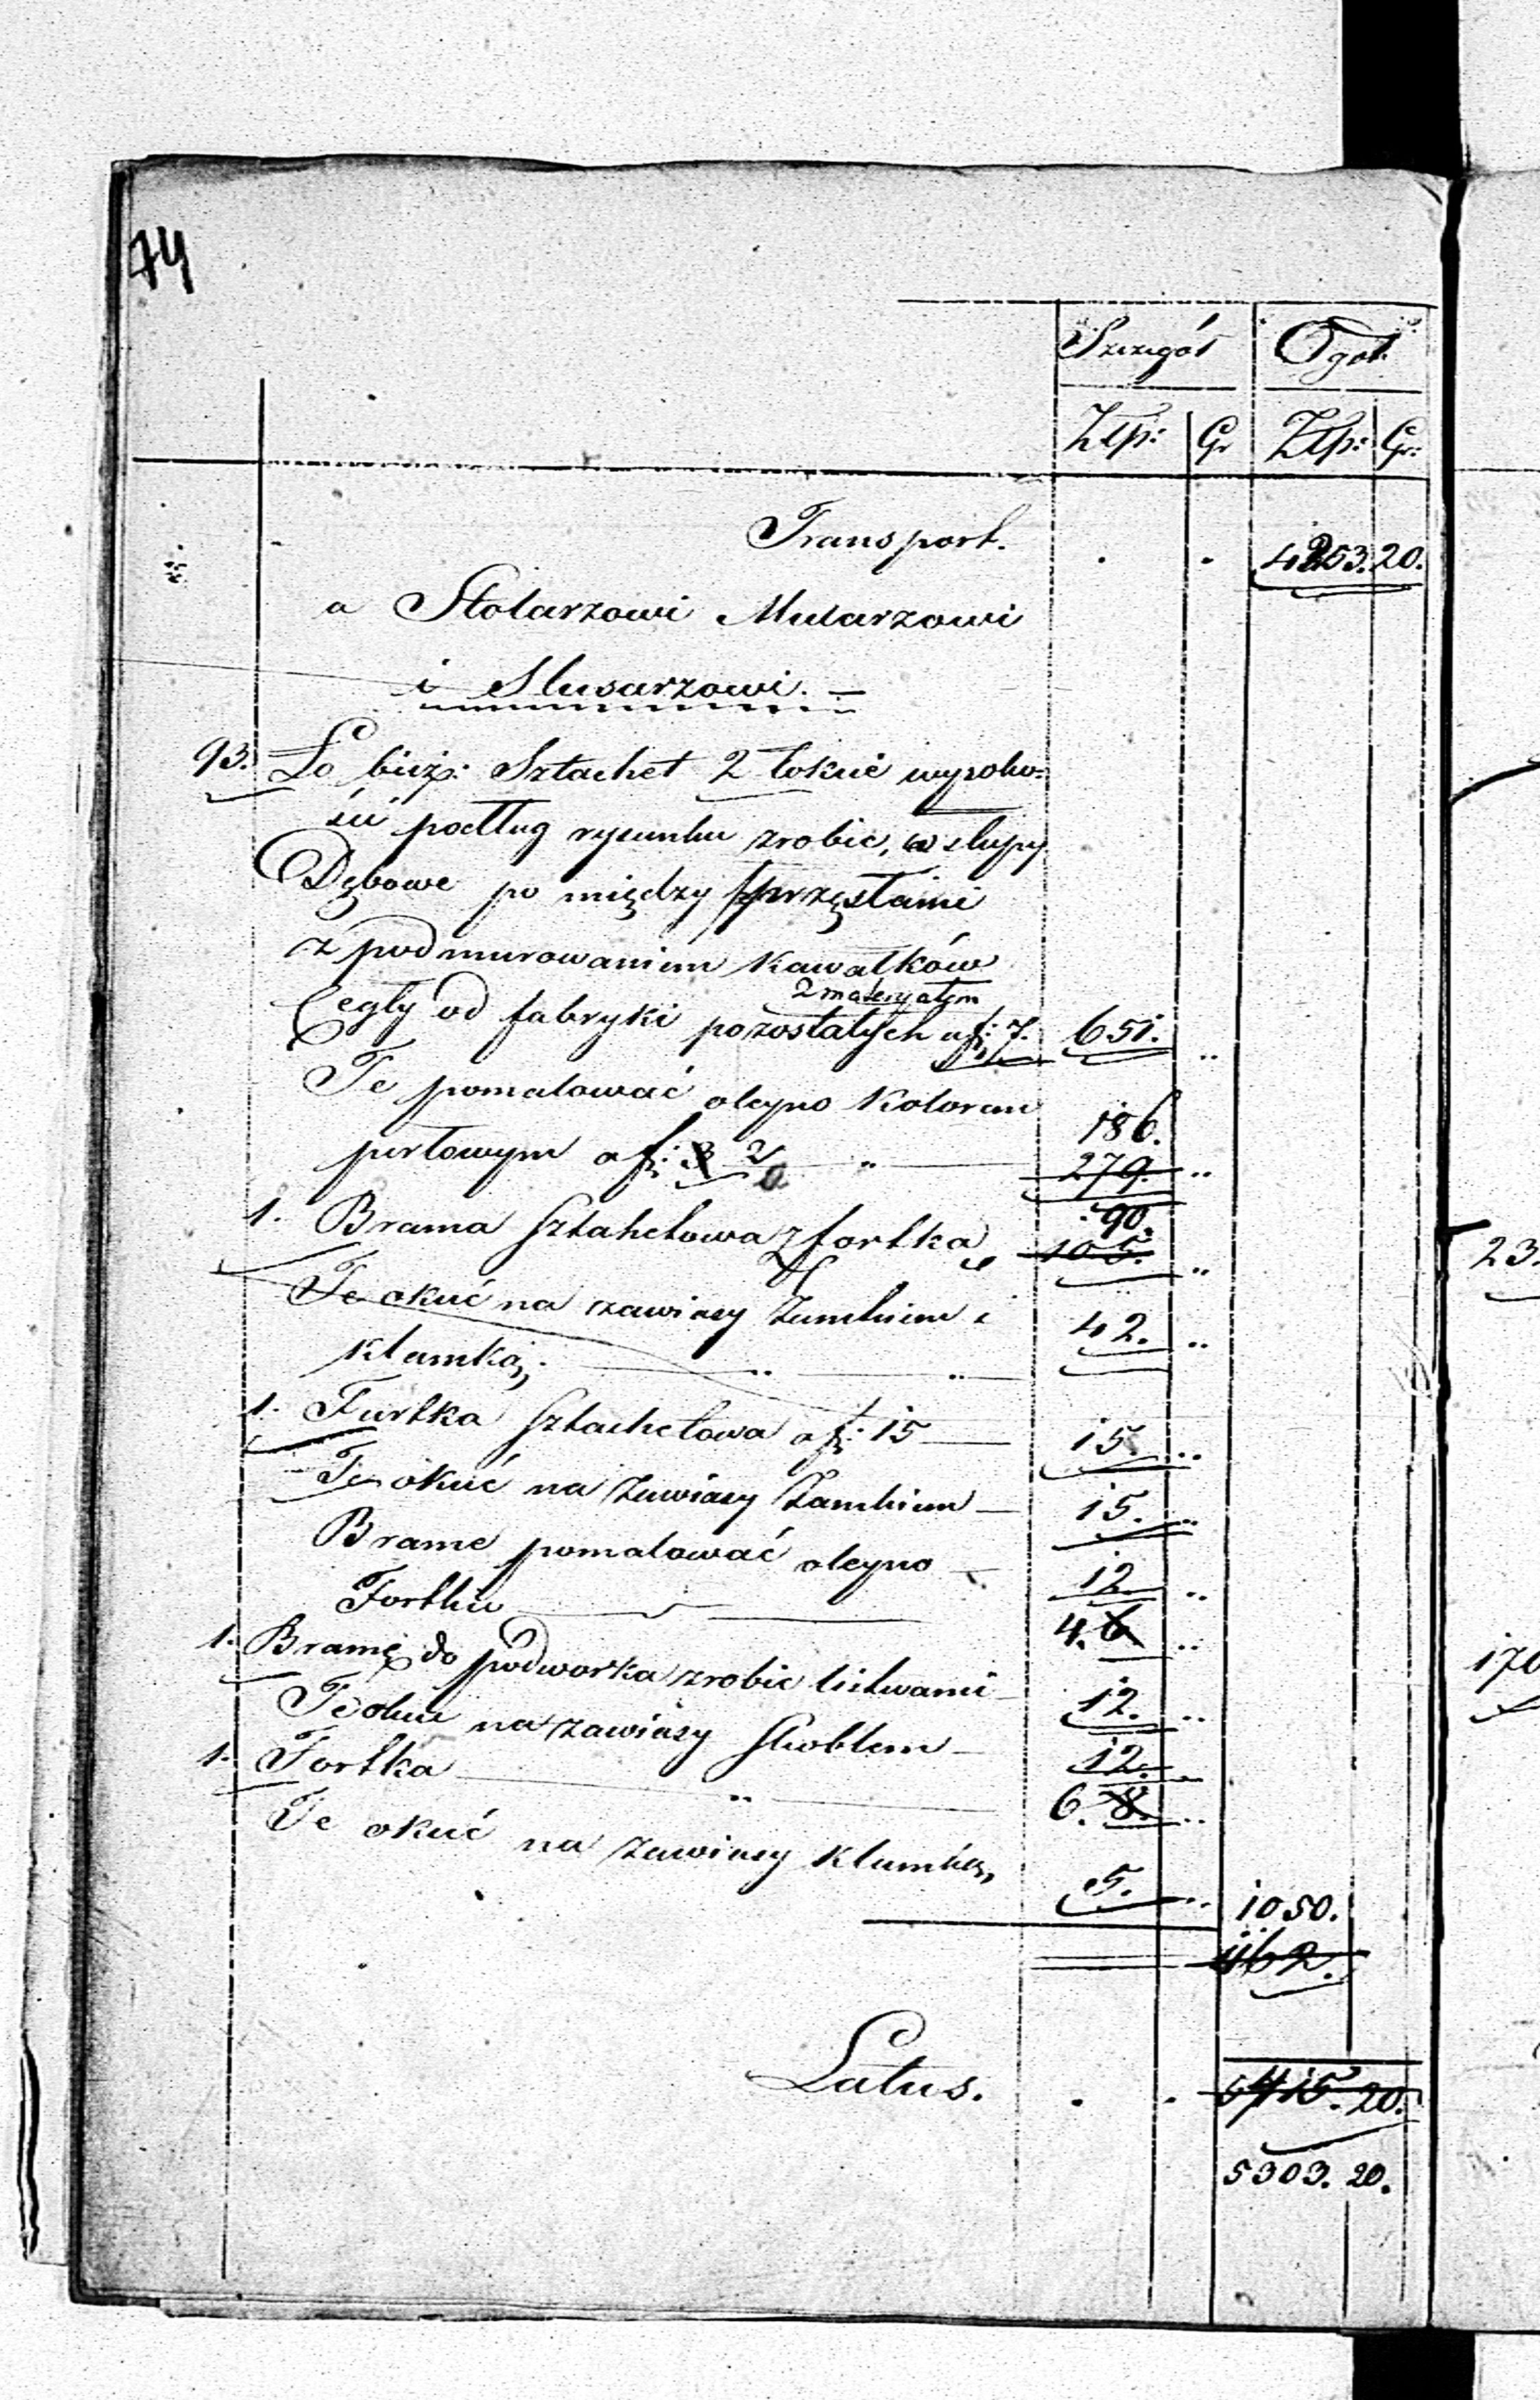 74
Szczegół Ogół
Złp: Gr Złp: Gr:
Transport. 4253. 20.
a Stolarzowi Mularzowi
i Slusarzowi. —
93. Ło bież: Sztachet 2 łokcie wysoko-
ści podług rysunku zrobić, w słupy
Dębowe po między przęsłami
z podmurowaniem kawałków
z materyałem
Cegły od fabryki pozostałych a f: 7. 651. ..
Te pomalować oleyno kolorem 186.
perłowym a f: 3 2 " 279. ..
90.
1. Brama Sztahetowa z fortką 105. ..
Te okuć na zawiasy Zamkiem i 42. ..
klamką. — " — "
1. Furtka Sztachetowa a f: 15 — 15. ..
Te okuć na zawiasy Zamkiem — 15. ..
Brame pomalować oleyno — 12 ..
Fortkę — 4. 6 ..
1. Bramę do podworka zrobic listwami — 12. ..
Te okuc na zawiasy Skoblem — 12. ..
1. Fortka — " — 6. 8. ..
Te okuć na zawiasy klamką, 5. .. 1050.
1162.
Latus. . . 5415. 20.
5303. 20.
23.
170